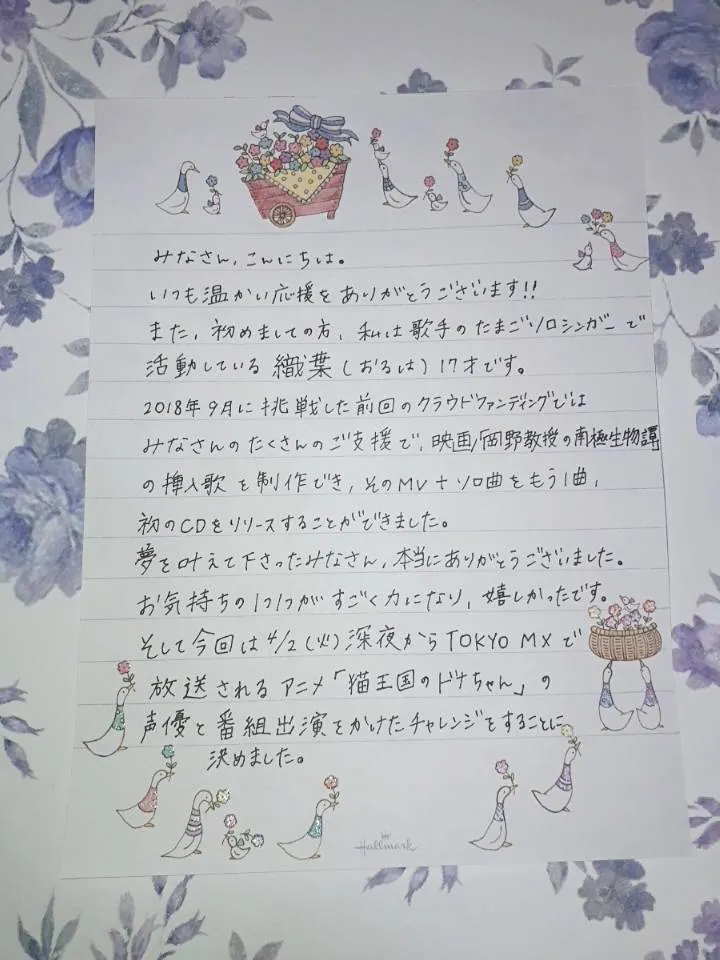 みなさん、こんにちは。
いつも温かい応援をありがとうございます!!
また、初めましての方、私は歌手のたまごソロシンガーで
活動している 織葉(おるは)17才です。
2018年9月に挑戦した前回のクラウドファンディングでは
みなさんのたくさんのご支援で、映画「岡野教授の南極生物譚
の挿入歌を制作でき、そのMV+ソロ曲をもう1曲、
初のCDをリリースすることができました。
夢を叶えて下さったみなさん、本当にありがとうございました。
お気持ちの1つ1つがすごく力になり、嬉しかったです。
そして今回は4/2(火)深夜からTOKYO MXで
放送されるアニメ「猫王国のドナちゃん」の
声優と番組出演をかけたチャレンジをすることに
決めました。
Hallmark